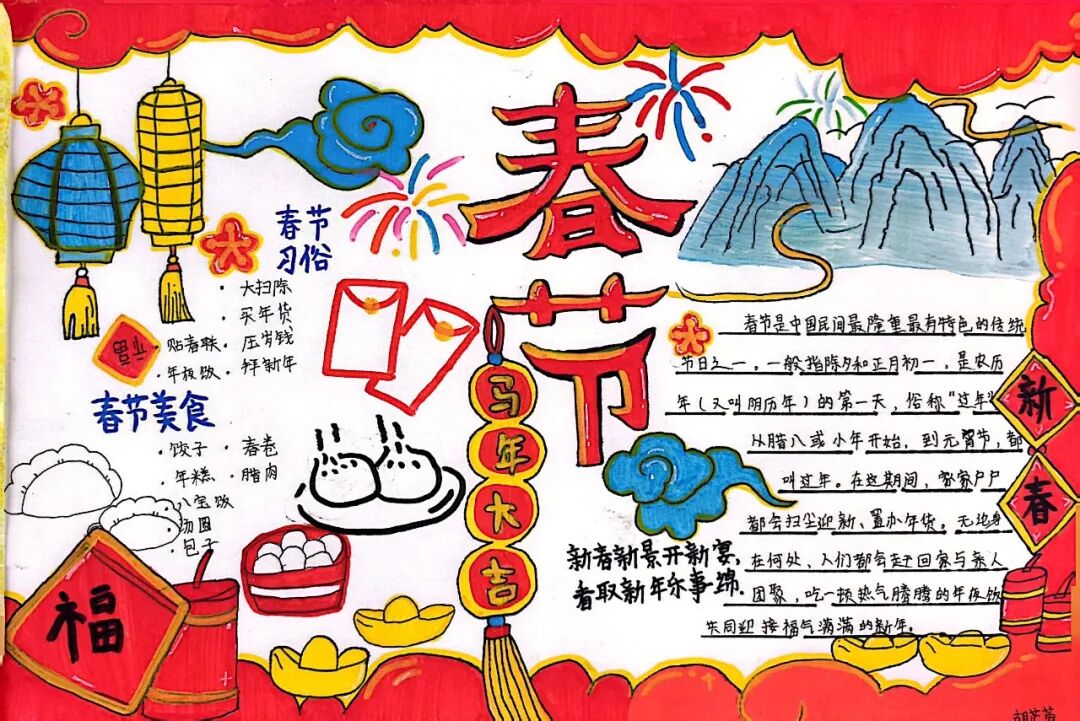 春节
春节
习俗
· 大扫除
· 买年货
· 贴春联 · 压岁钱
· 年夜饭 · 拜新年
春节美食
· 饺子 · 春卷
· 年糕 · 腊肉
· 八宝饭
· 汤圆
· 包子
福
马年大吉
新春新景开新宴,
春取新年乐事绵.
春节是中国民间最隆重最有特色的传统
节日之一。一般指除夕和正月初一，是农历
年（又叫阴历年）的第一天，俗称“过年”
从腊八或小年开始，到元宵节，都
叫过年。在这期间，家家户户
都会扫尘迎新、置办年货。无论身
在何处，人们都会赶回家与亲人
团聚，吃一顿热气腾腾的年夜饭
共同迎接福气满满的新年。
新
春